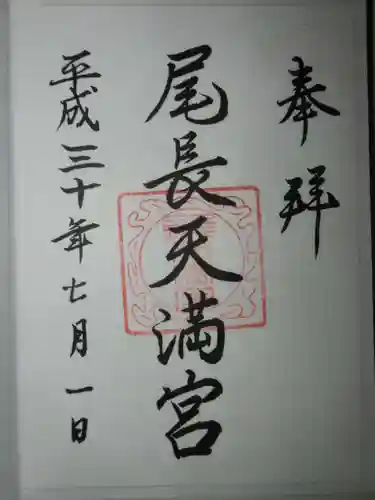 奉拜
尾長天満宮
平成三十年七月一日